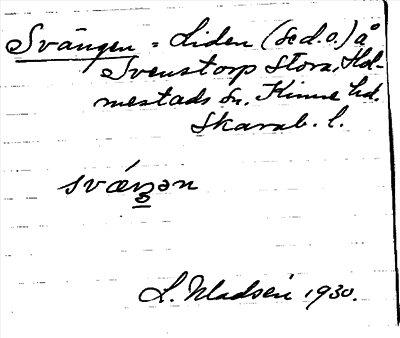 Svängen = Liden (se d.o.) å
Svenstorp Stora, Hol-
mestads sn. Kinne hd.
Skarab. l.
svǽŋən
L. Madsén 1930.